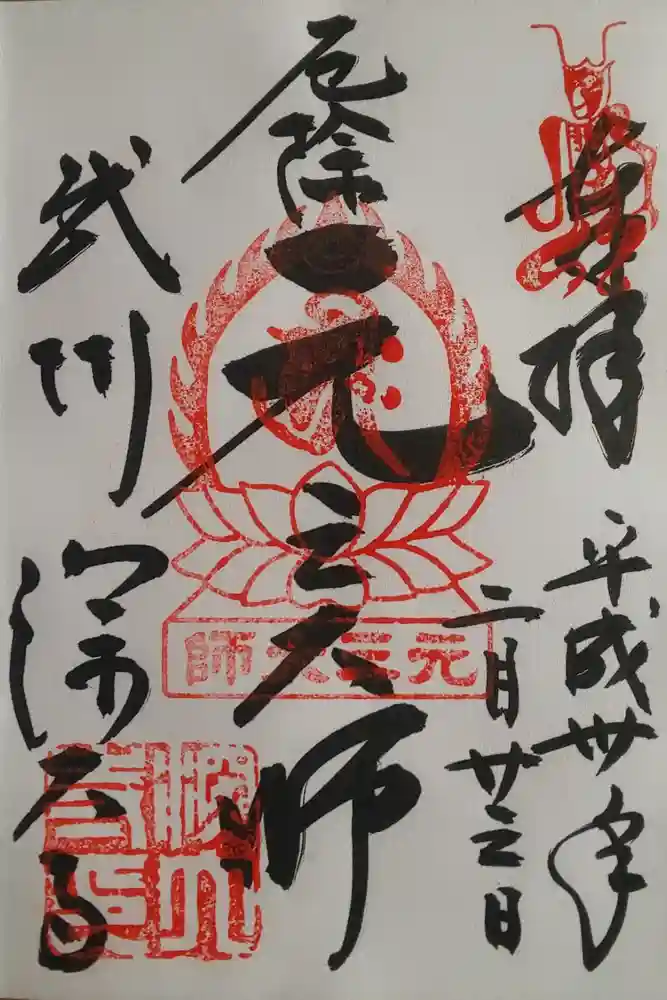 奉拝
平成卅年
二月廿三日
厄除元三大師
元三大師
武州
深大寺
深大寺印